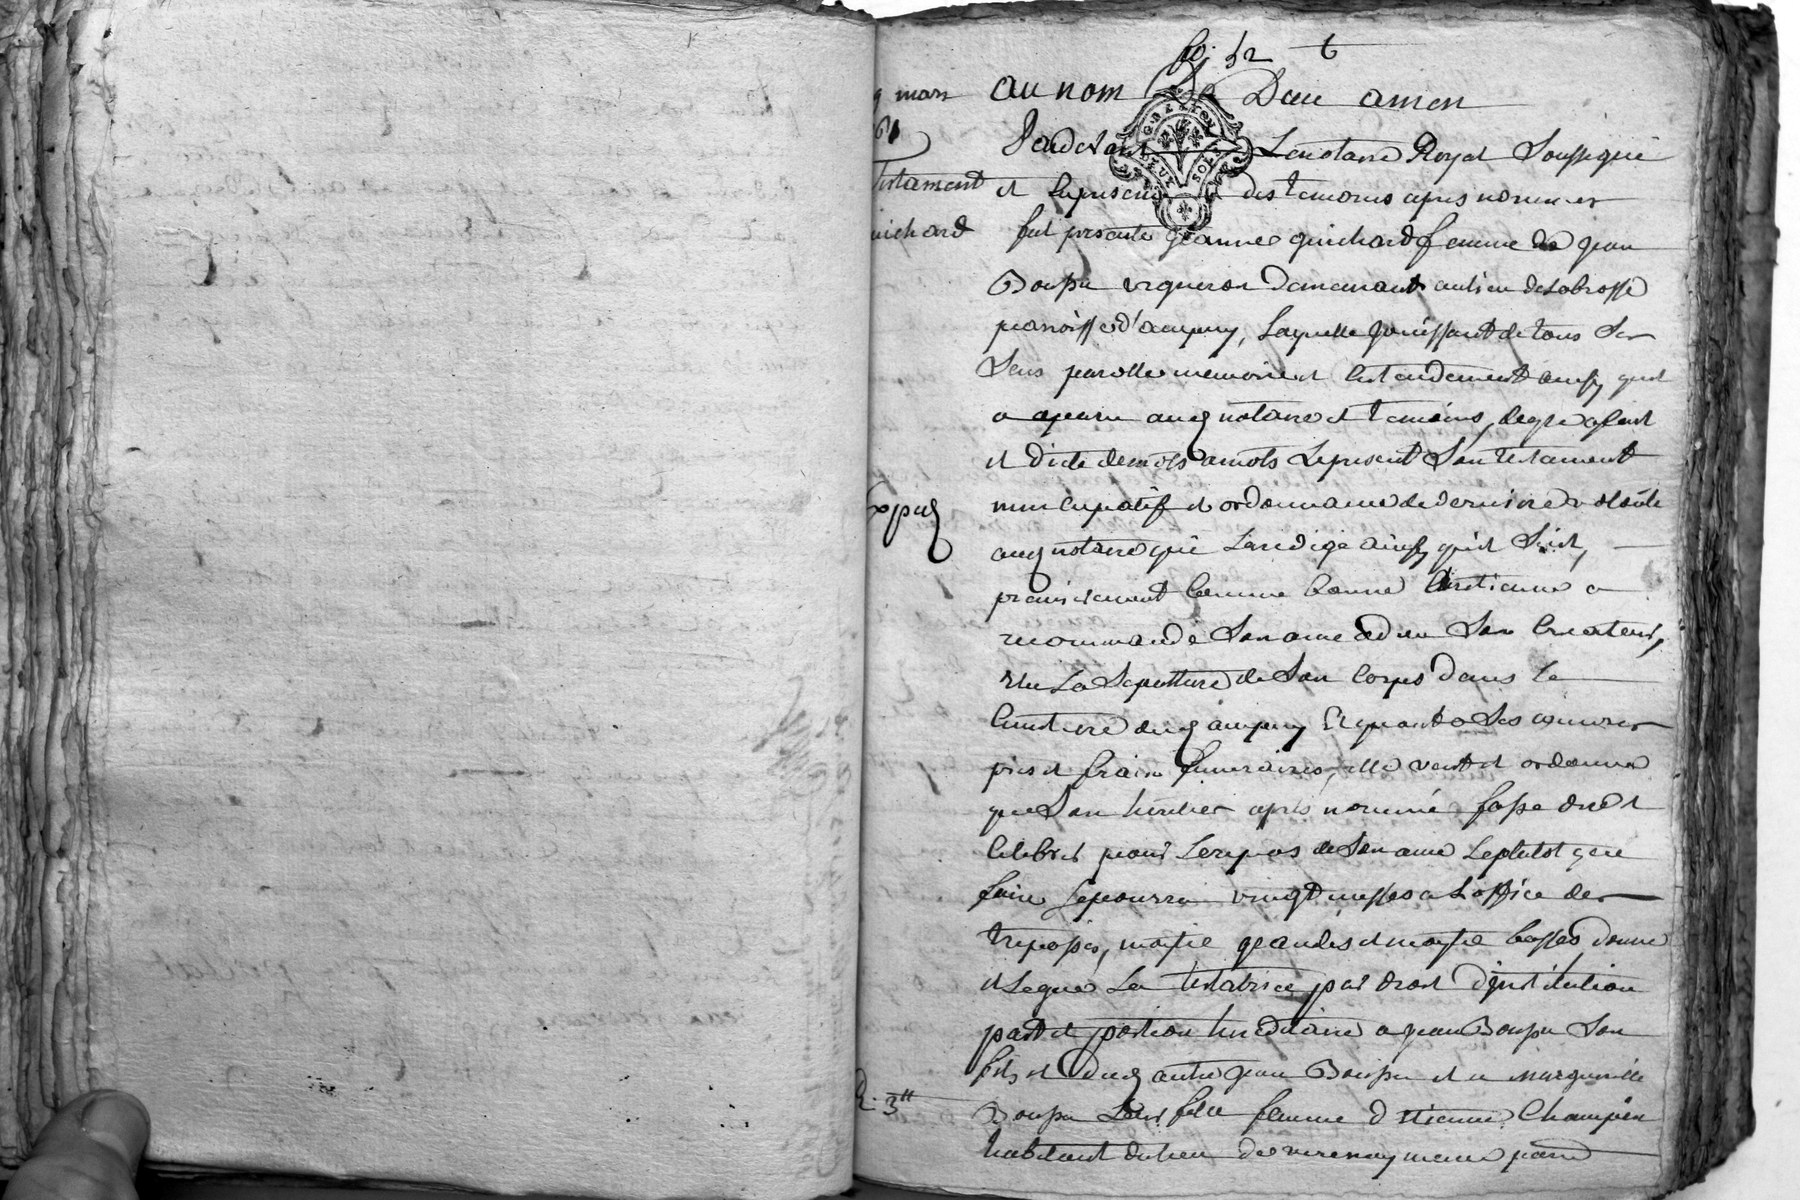 fo. 52
au nom De Dieu amen
9 mars
61
Pardevant Le notaire Royal Soussigné
testament
et En presence des temoins apres nommes
uichard
fut presente jeanne guichard femme de jean
Boupu vigneron demeurant au lieu de Labrosse
paroisse d'ampuy, Laquelle jouissant de tous Ses
Sens parolle memoire et Entendement ainsy quil
a aparu aud notaire et temoins, de gré a fait
et dicté de mots a mots Le present Son testament
Expié
nuncupatif et ordonnance de derniere volonté
aud notaire qui La redigé ainsy qu'il Suit,
premierement Comme bonne Chretienne a
recommandé Son ame a dieu Son Createur,
Elu La Sepulture de Son Corps dans le
Cimetiere dud ampuy Et quant a Ses oeuvres
pies et frais funeraires, elle veut et ordonne
que Son heritier apres nommé fasse dire et
Celebrer pour Le repos de Son ame Le plutot que
faire Se pourra vingt messes a L'office des
trepassés, moytié grandes et moytié basses donne
et Legue La testatrice par droit d'institution
part et portion hereditaire a jean Boupu Son
fils et dud autre jean Boupu et a Marguerite
R. 3tt
Boupu Leur fille femme d'Etienne Champin
habitant du lieu de verenay meme paroisse
GEN. DE LYON
DEUX SOLS